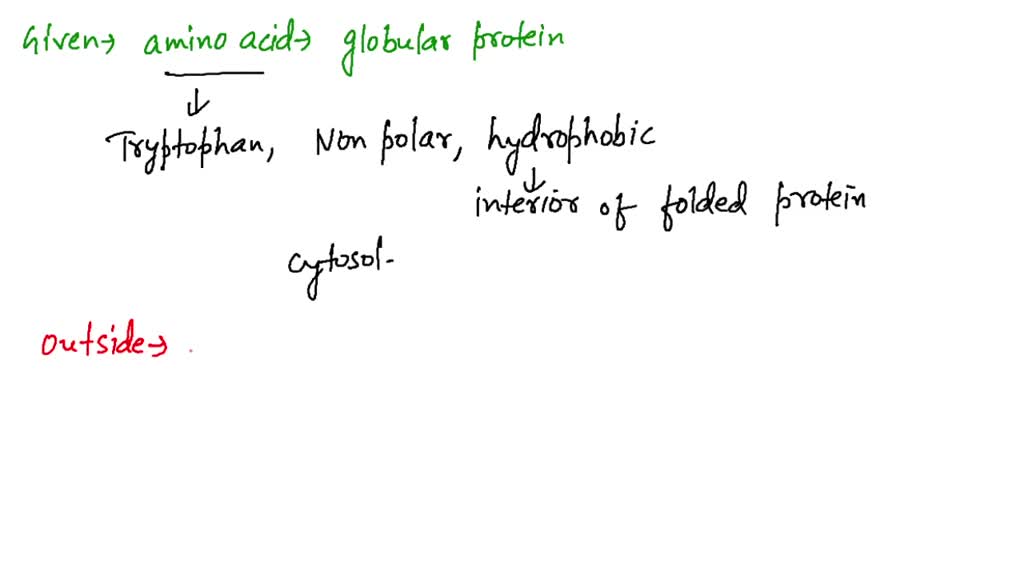 Given→ amino acid→ globular protein
↓
Tryptophan, Non polar, hydrophobic
↓
interior of folded protein
cytosol-
outside→